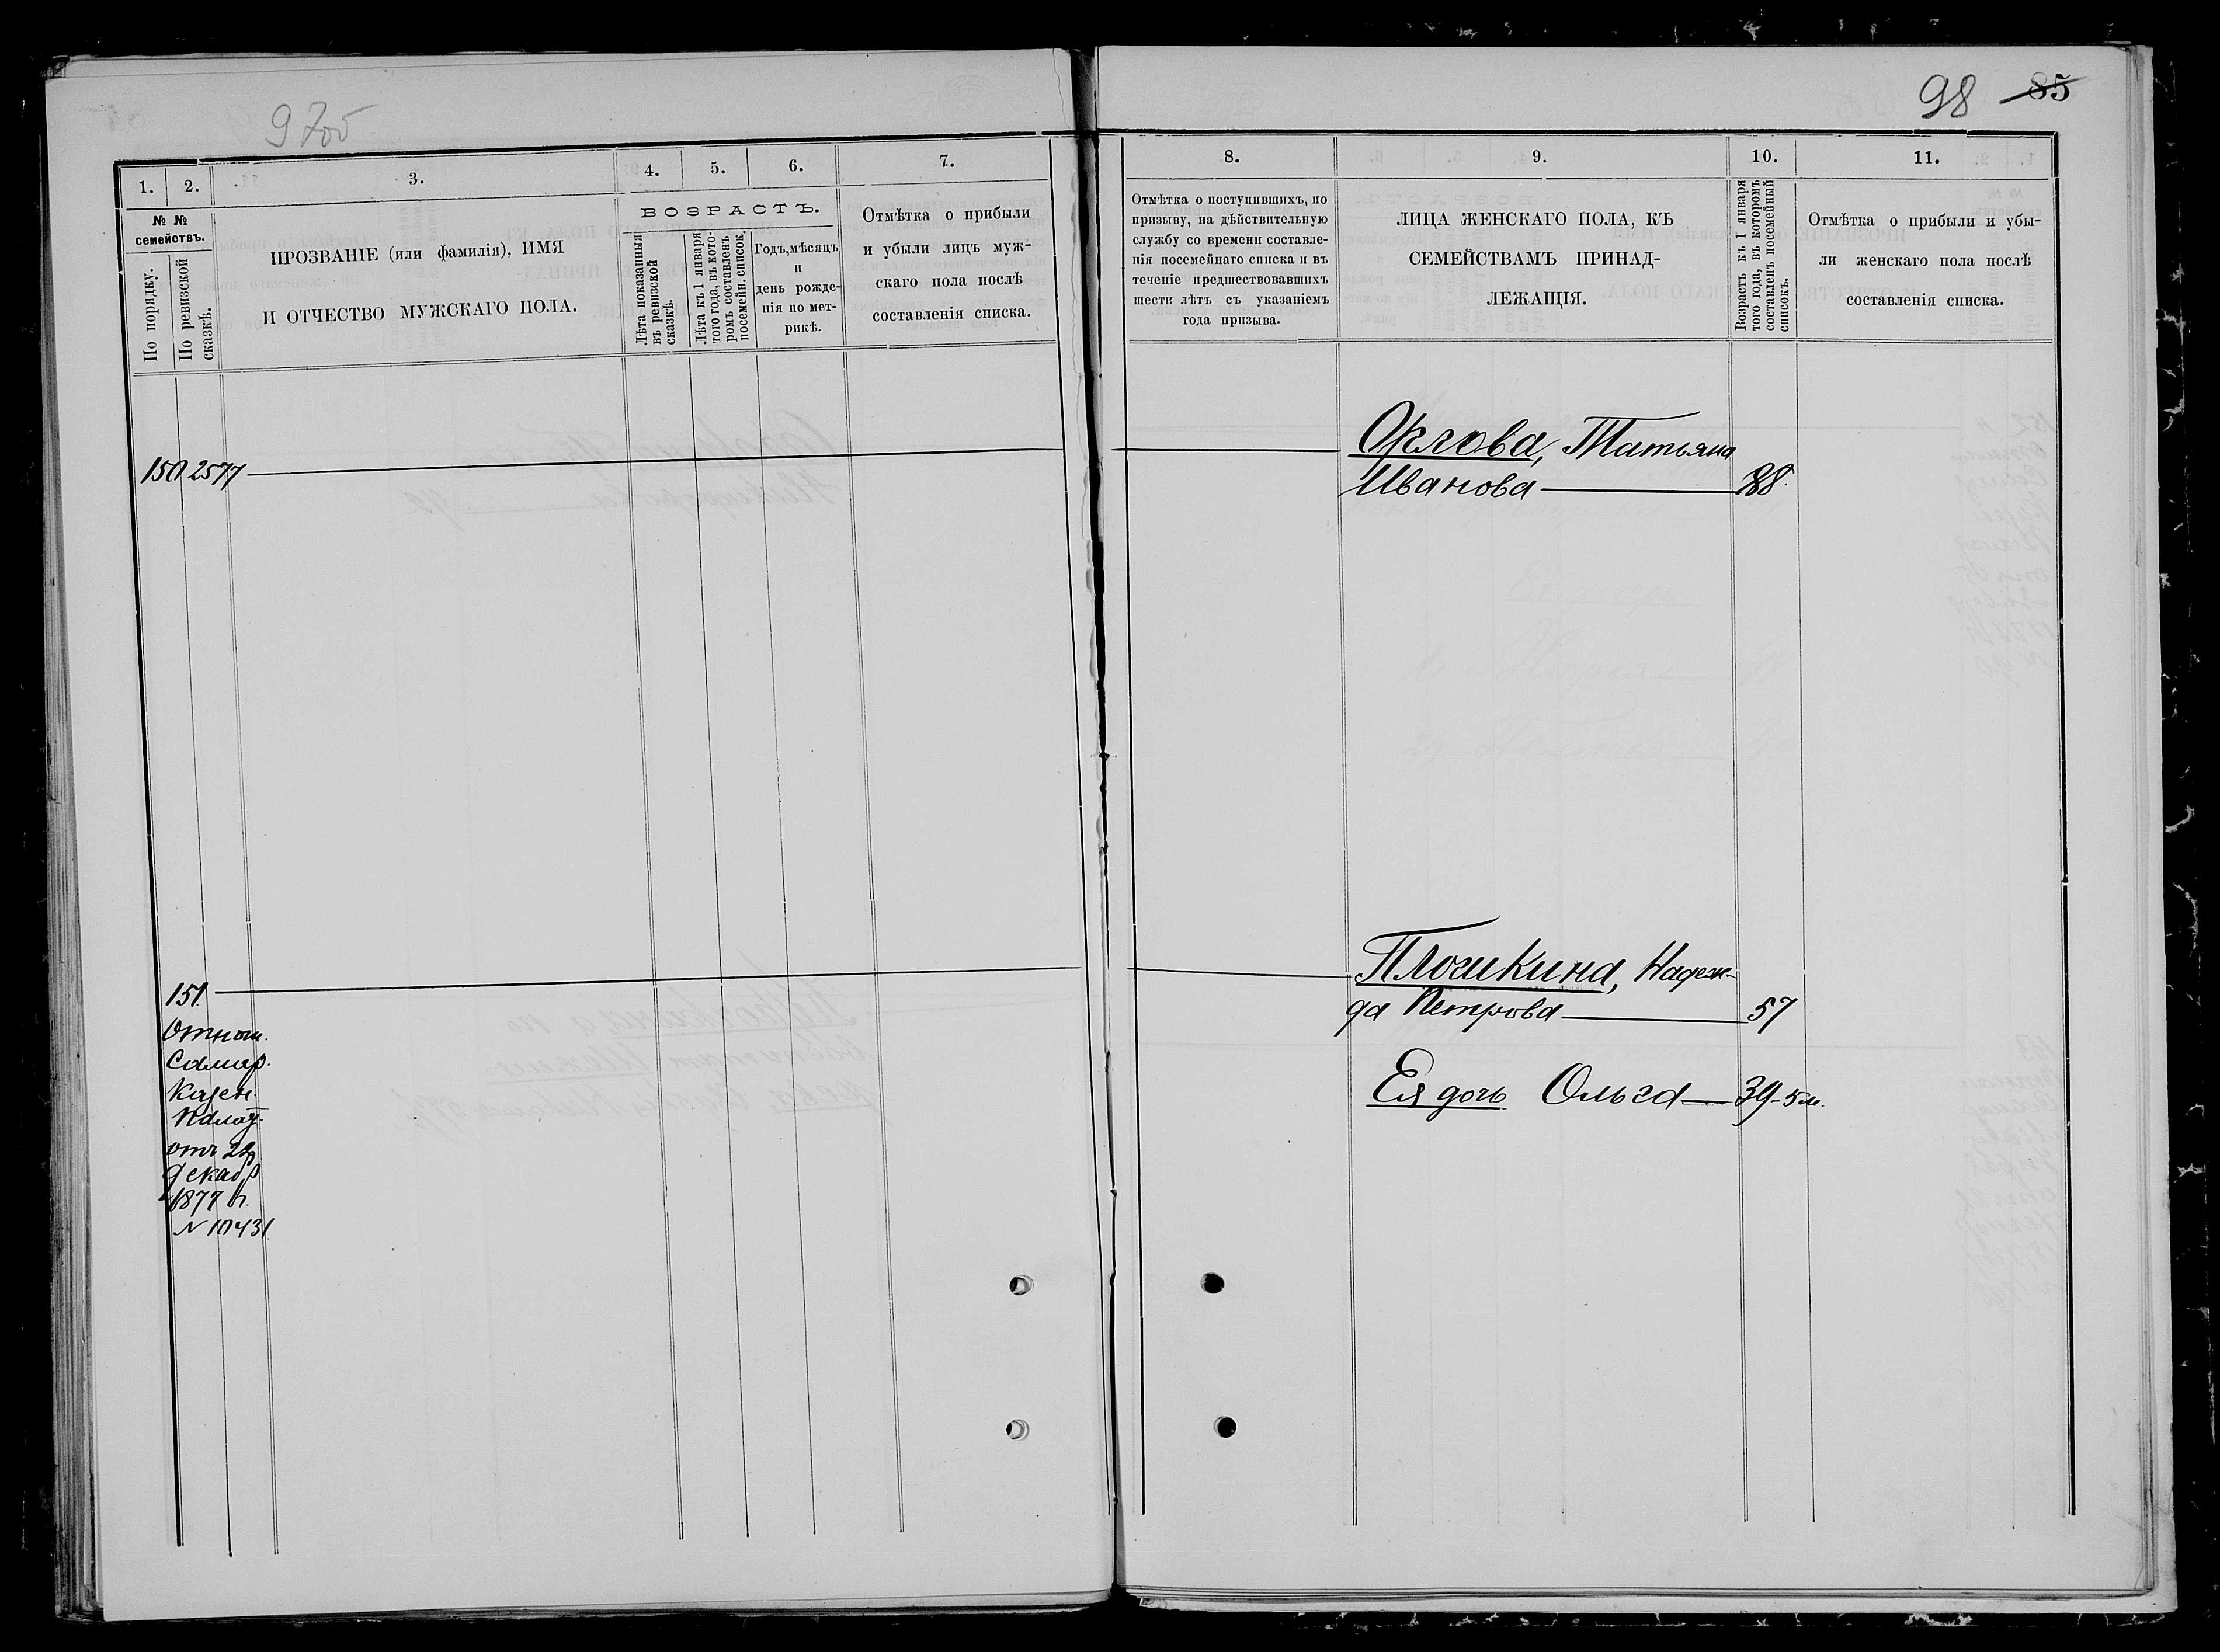 98 85
1. 2. 3. 4. 5. 6. 7.
№ №
семействъ.
По порядку.
По ревизской
сказкѣ.
ПРОЗВАНІЕ (или фамилія), ИМЯ
И ОТЧЕСТВО МУЖСКАГО ПОЛА.
ВОЗРАСТЪ.
Лѣта показанныя
въ ревизской
сказкѣ.
Лѣта къ 1 января
того года, въ кото-
ромъ составленъ
посемейн. список.
Годъ, мѣсяцъ
и
день рожде-
нія по мет-
рикѣ.
Отмѣтка о прибыли
и убыли лицъ муж-
скаго пола послѣ
составленія списка.
150 2577
151
Отнош.
Самар.
Казен.
Палат.
отъ 22
декаб.
1877 г.
N 10431
8. 9. 10. 11.
Отмѣтка о поступившихъ, по
призыву, на дѣйствительную
службу со времени составле-
нія посемейнаго списка и въ
теченіе предшествовавшихъ
шести лѣтъ съ указаніемъ
года призыва.
ЛИЦА ЖЕНСКАГО ПОЛА, КЪ
СЕМЕЙСТВАМЪ ПРИНАД-
ЛЕЖАЩІЯ.
Возрастъ къ 1 января
того года, въ которомъ
составленъ посемейный
списокъ.
Отмѣтка о прибыли и убы-
ли женскаго пола послѣ
составленія списка.
Орлова, Татьяна
Иванова 88.
Плошкина, Надеж-
да Петрова 57
Ея дочь Ольга 39-5 м.